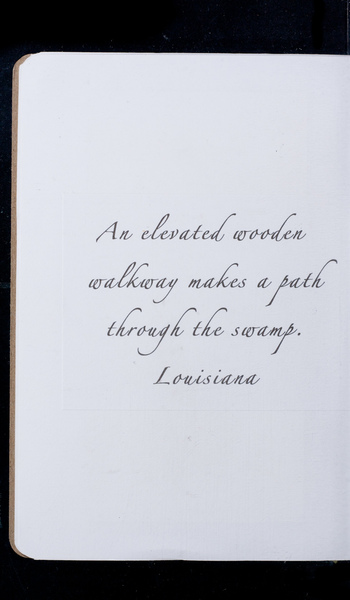 An elevated wooden
walkway makes a path
through the swamp.
Louisiana